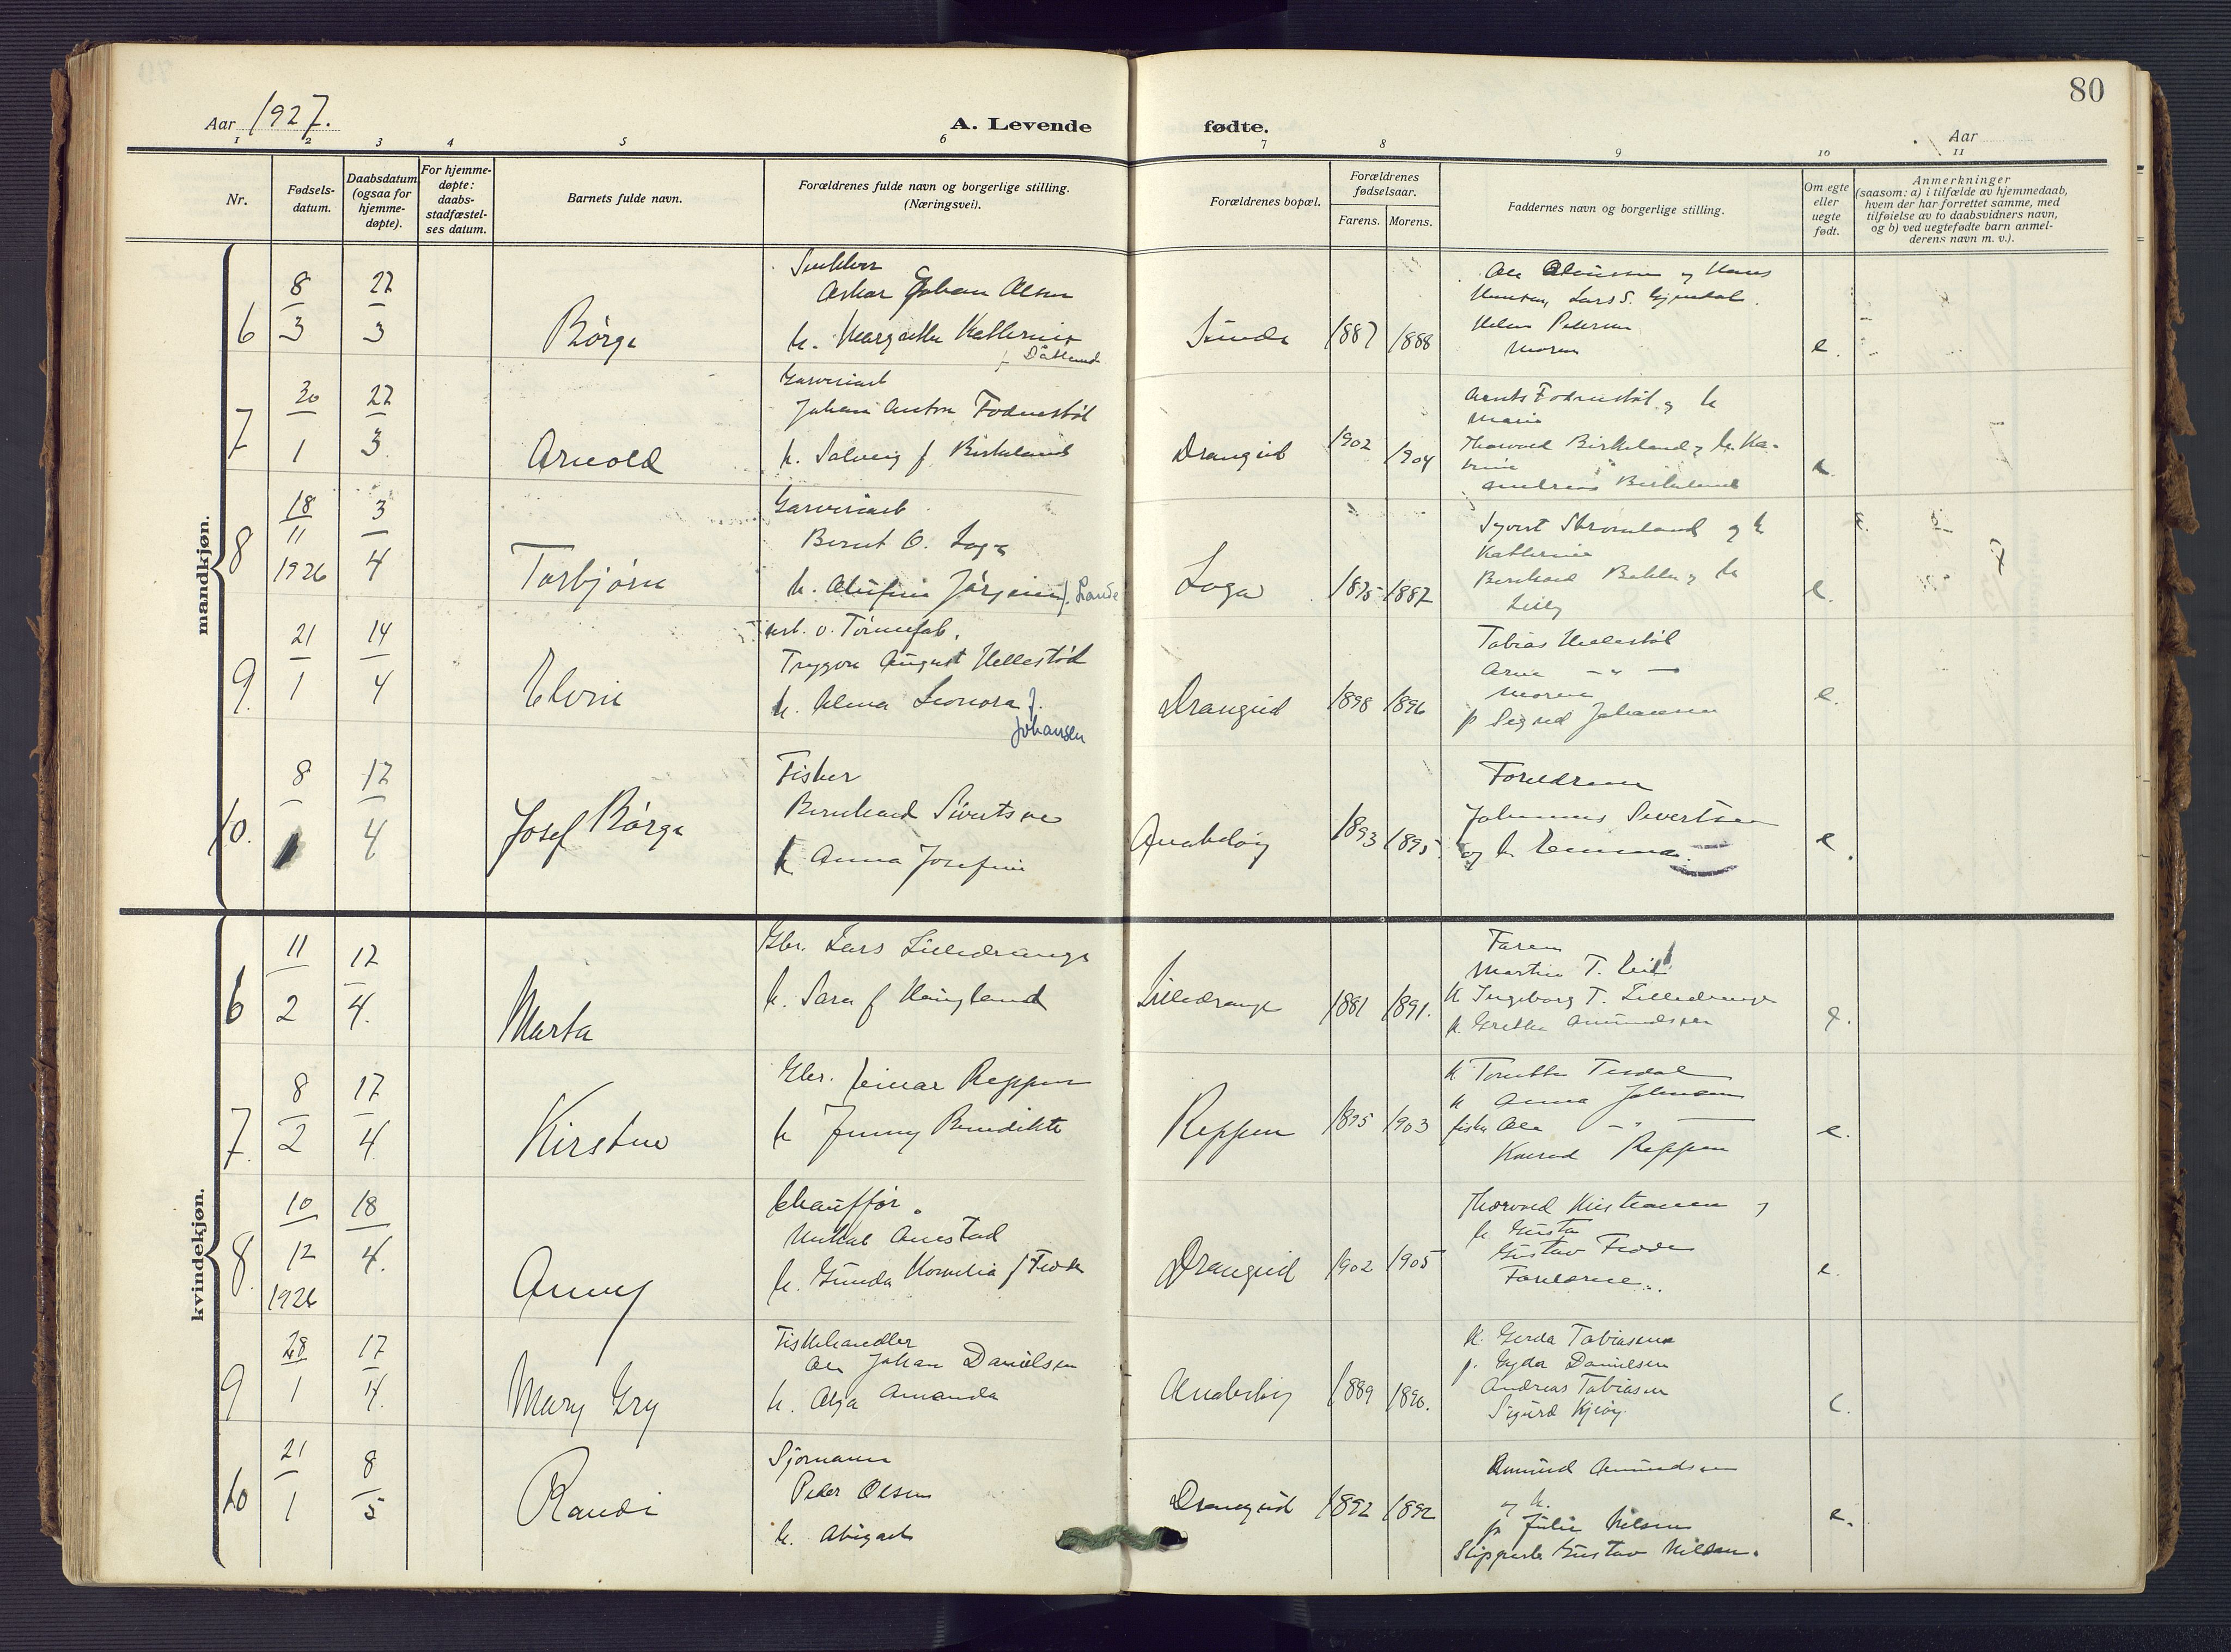 80
Aar 1927.
A. Levende fødte.
Aar
1 2 3 4 5 6 7 8 9 10 11
Nr.
Fødsels-
datum.
Daabsdatum
(ogsaa for
hjemme-
døpte).
For hjemme-
døpte:
daabs-
stadfæstel-
ses datum.
Barnets fulde navn.
Forældrenes fulde navn og borgerlige stilling.
(Næringsvei).
Forældrenes bopæl.
Forældrenes
fødselsaar.
Farens. Morens.
Faddernes navn og borgerlige stilling.
Om egte
eller
uegte
født.
Anmerkninger
(saasom: a) i tilfælde av hjemmedaab,
hvem der har forrettet samme, med
tilføielse av to daabsvidners navn,
og b) ved uegtefødte barn anmel-
derens navn m. v.).
mandkjøn.
6
8
3
22
3
Børge
Johan Olsen
h. Margrethe Kathrine
Sunde
1887 1888
Helene Petersen
Moren
e.
7
20
1
22
3
Arnold
Garveriarb
Johan Anton Fodnestøl
h. Solveig f. Birkeland
Drangeid
1902
1904
Fodnestøl og h
Marie
Thorvald Birkeland og h. Ka-
trine
Andreas Birkeland
e.
8
18
11
1926
3
4
Torbjørn
Garveriarb
Bernt O. Loga
h. Olufine Jørgine f. Lande
Loga
1875 1887
Syvert Stromland og h
Kathrine
Bernhard
Lilly
e.
9.
21
1
14
4
Elvin
arb. v. Tønnefab.
Trygve August Hellestøl
h. Alma Leonora f.
Johansen
Drangeid
1898 1896
Tobias Hellestøl
Arne — " —
Moren
p Sigrid Johansen
e.
10.
8
1
17
4
Josef Børge
Fisker
Bernhard Sivertsen
h Anna Josefine
Anabeløy
1893 1895
Foreldrene
Johannes Sivertsen
og h Emma.
e.
kvindekjøn.
6
11
2
17
4.
Marta
Gbr. Lars Lilledrange
h. Sara f Haugland
Lilledrange
1881 1891.
Faren
Martin T.
h Ingeborg T. Lilledrange
h. Grethe Amundsen
e.
7.
8
2
17
4
Kirsten
Gbr. Einar Reppen
h Jenny Benedikte
Reppen
1895 1903
h Tomine Tesdal
h Anna Johnsen
fisker Ole — " —
Konrad Reppen
e.
8.
10
12
1926
18
4.
Anny
Chauffør.
Mikal Anestad
h. Gunda Kornelia f Fedde
Drangeid
1902 1905
Thorvald Kristiansen og
h Gusta
Gustav Fedde
Foreldrene.
e.
9
28
1
17
4.
Mary Gry
Fiskehandler
Ole Johan Danielsen
h. Olga Amanda
Anabeløy
1889 1890.
h. Gerda Tobiasen
p. Gyda Danielsen
Andreas Tobiasen
Sigurd Kjeøy
e.
10
21
1
8
5
Randi
Sjømann
Peder Olsen
h. Abigael
Drangeid
1892 1892
Amund Amundsen
og h.
p Julie Nilsen
Gustav Nilsen.
e.